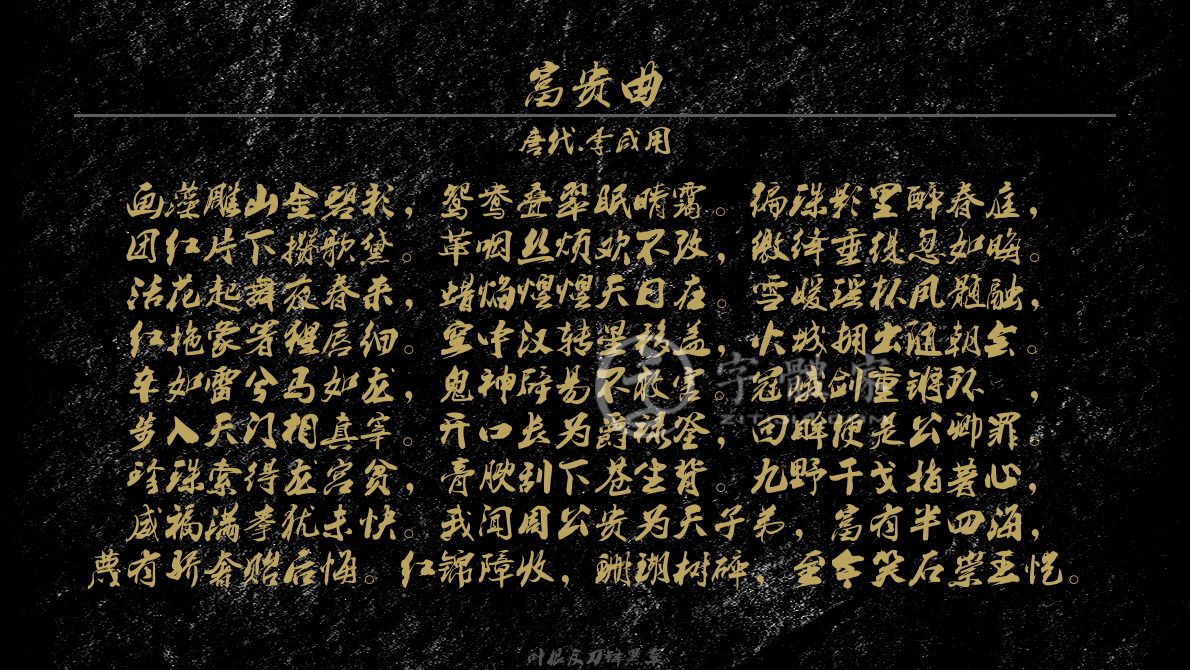 富贵曲
唐代.李咸用
画藻雕山金碧彩，鸳鸯叠翠眠晴霭。编珠影里醉春庭，
团红片下攒歌黛。革咽丝烦欢不改，缴绛垂缇忽如晦。
活花起舞夜春来，蜡焰煌煌天日在。雪暖瑶杯凤髓融，
红拖象箸猩唇细。空中汉转星移盖，火城拥出随朝会。
车如雷兮马如龙，鬼神辟易不敢害。冠峨剑重锵环 ，
步入天门相真宰。开口长为爵禄筌，回眸便是公卿罪。
珍珠索得龙宫贫，膏腴刮下苍生背。九野干戈指著心，
威福满拳犹未快。我闻周公贵为天子弟，富有半四海，
典有骄奢贻后悔。红锦障收，珊瑚树碎，至今笑石崇王恺。
字体库